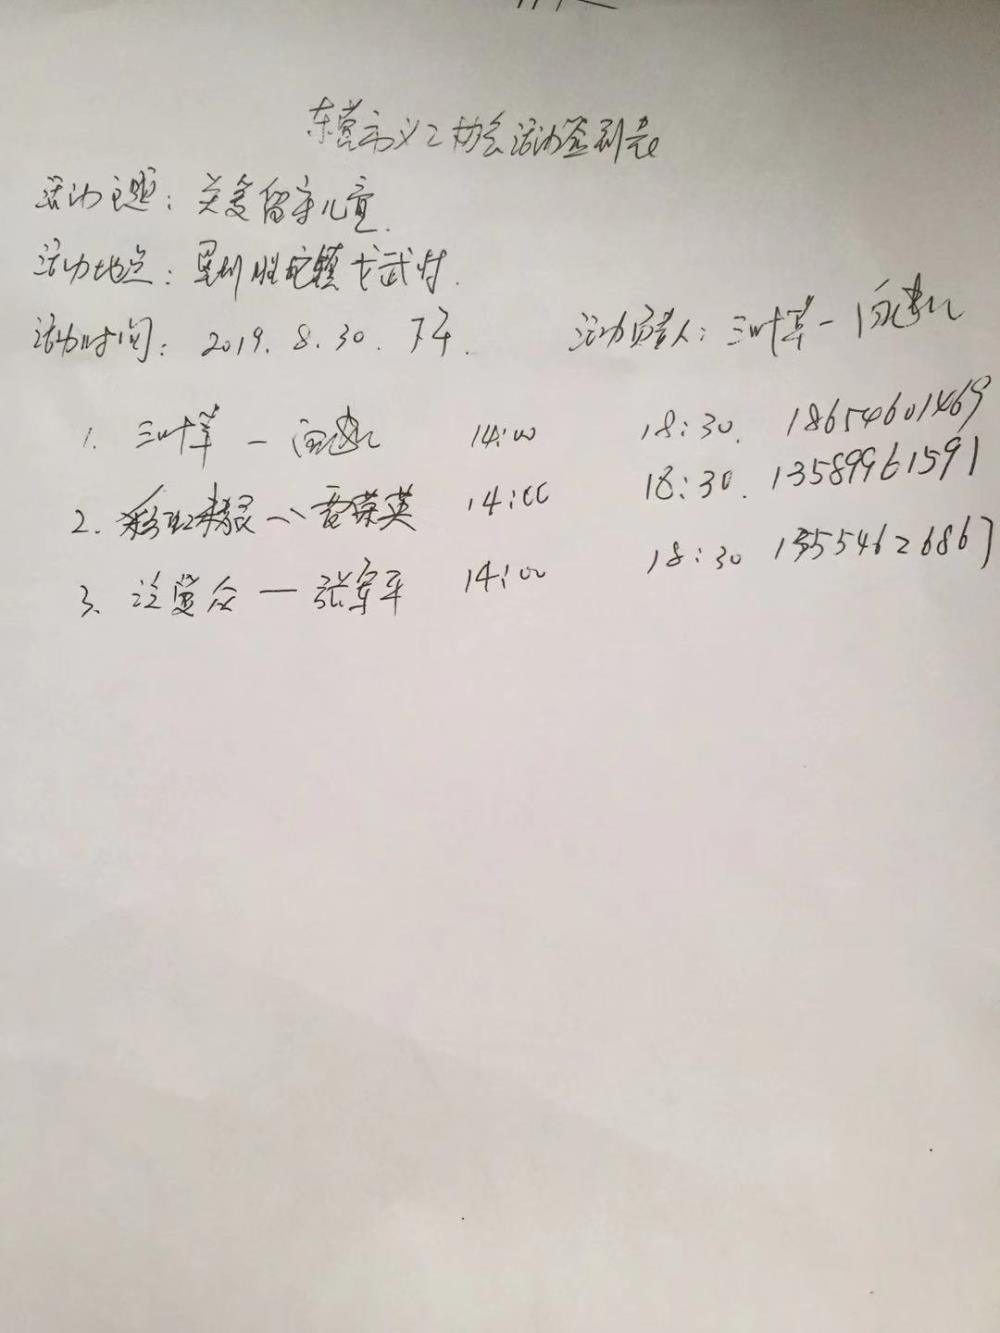 东营市义工协会活动签到表
活动主题：关爱留守儿童.
活动地点：垦利胜坨镇戈武村.
活动时间：2019.8.30.下午. 活动负责人：三叶草－闫
1. 三叶草－闫 14:00 18:30. 18654601469
2. 彩虹精灵－荣英 14:00 18:30. 13589961591
3. 泛爱众－张军平 14:00 18:30 13554626867